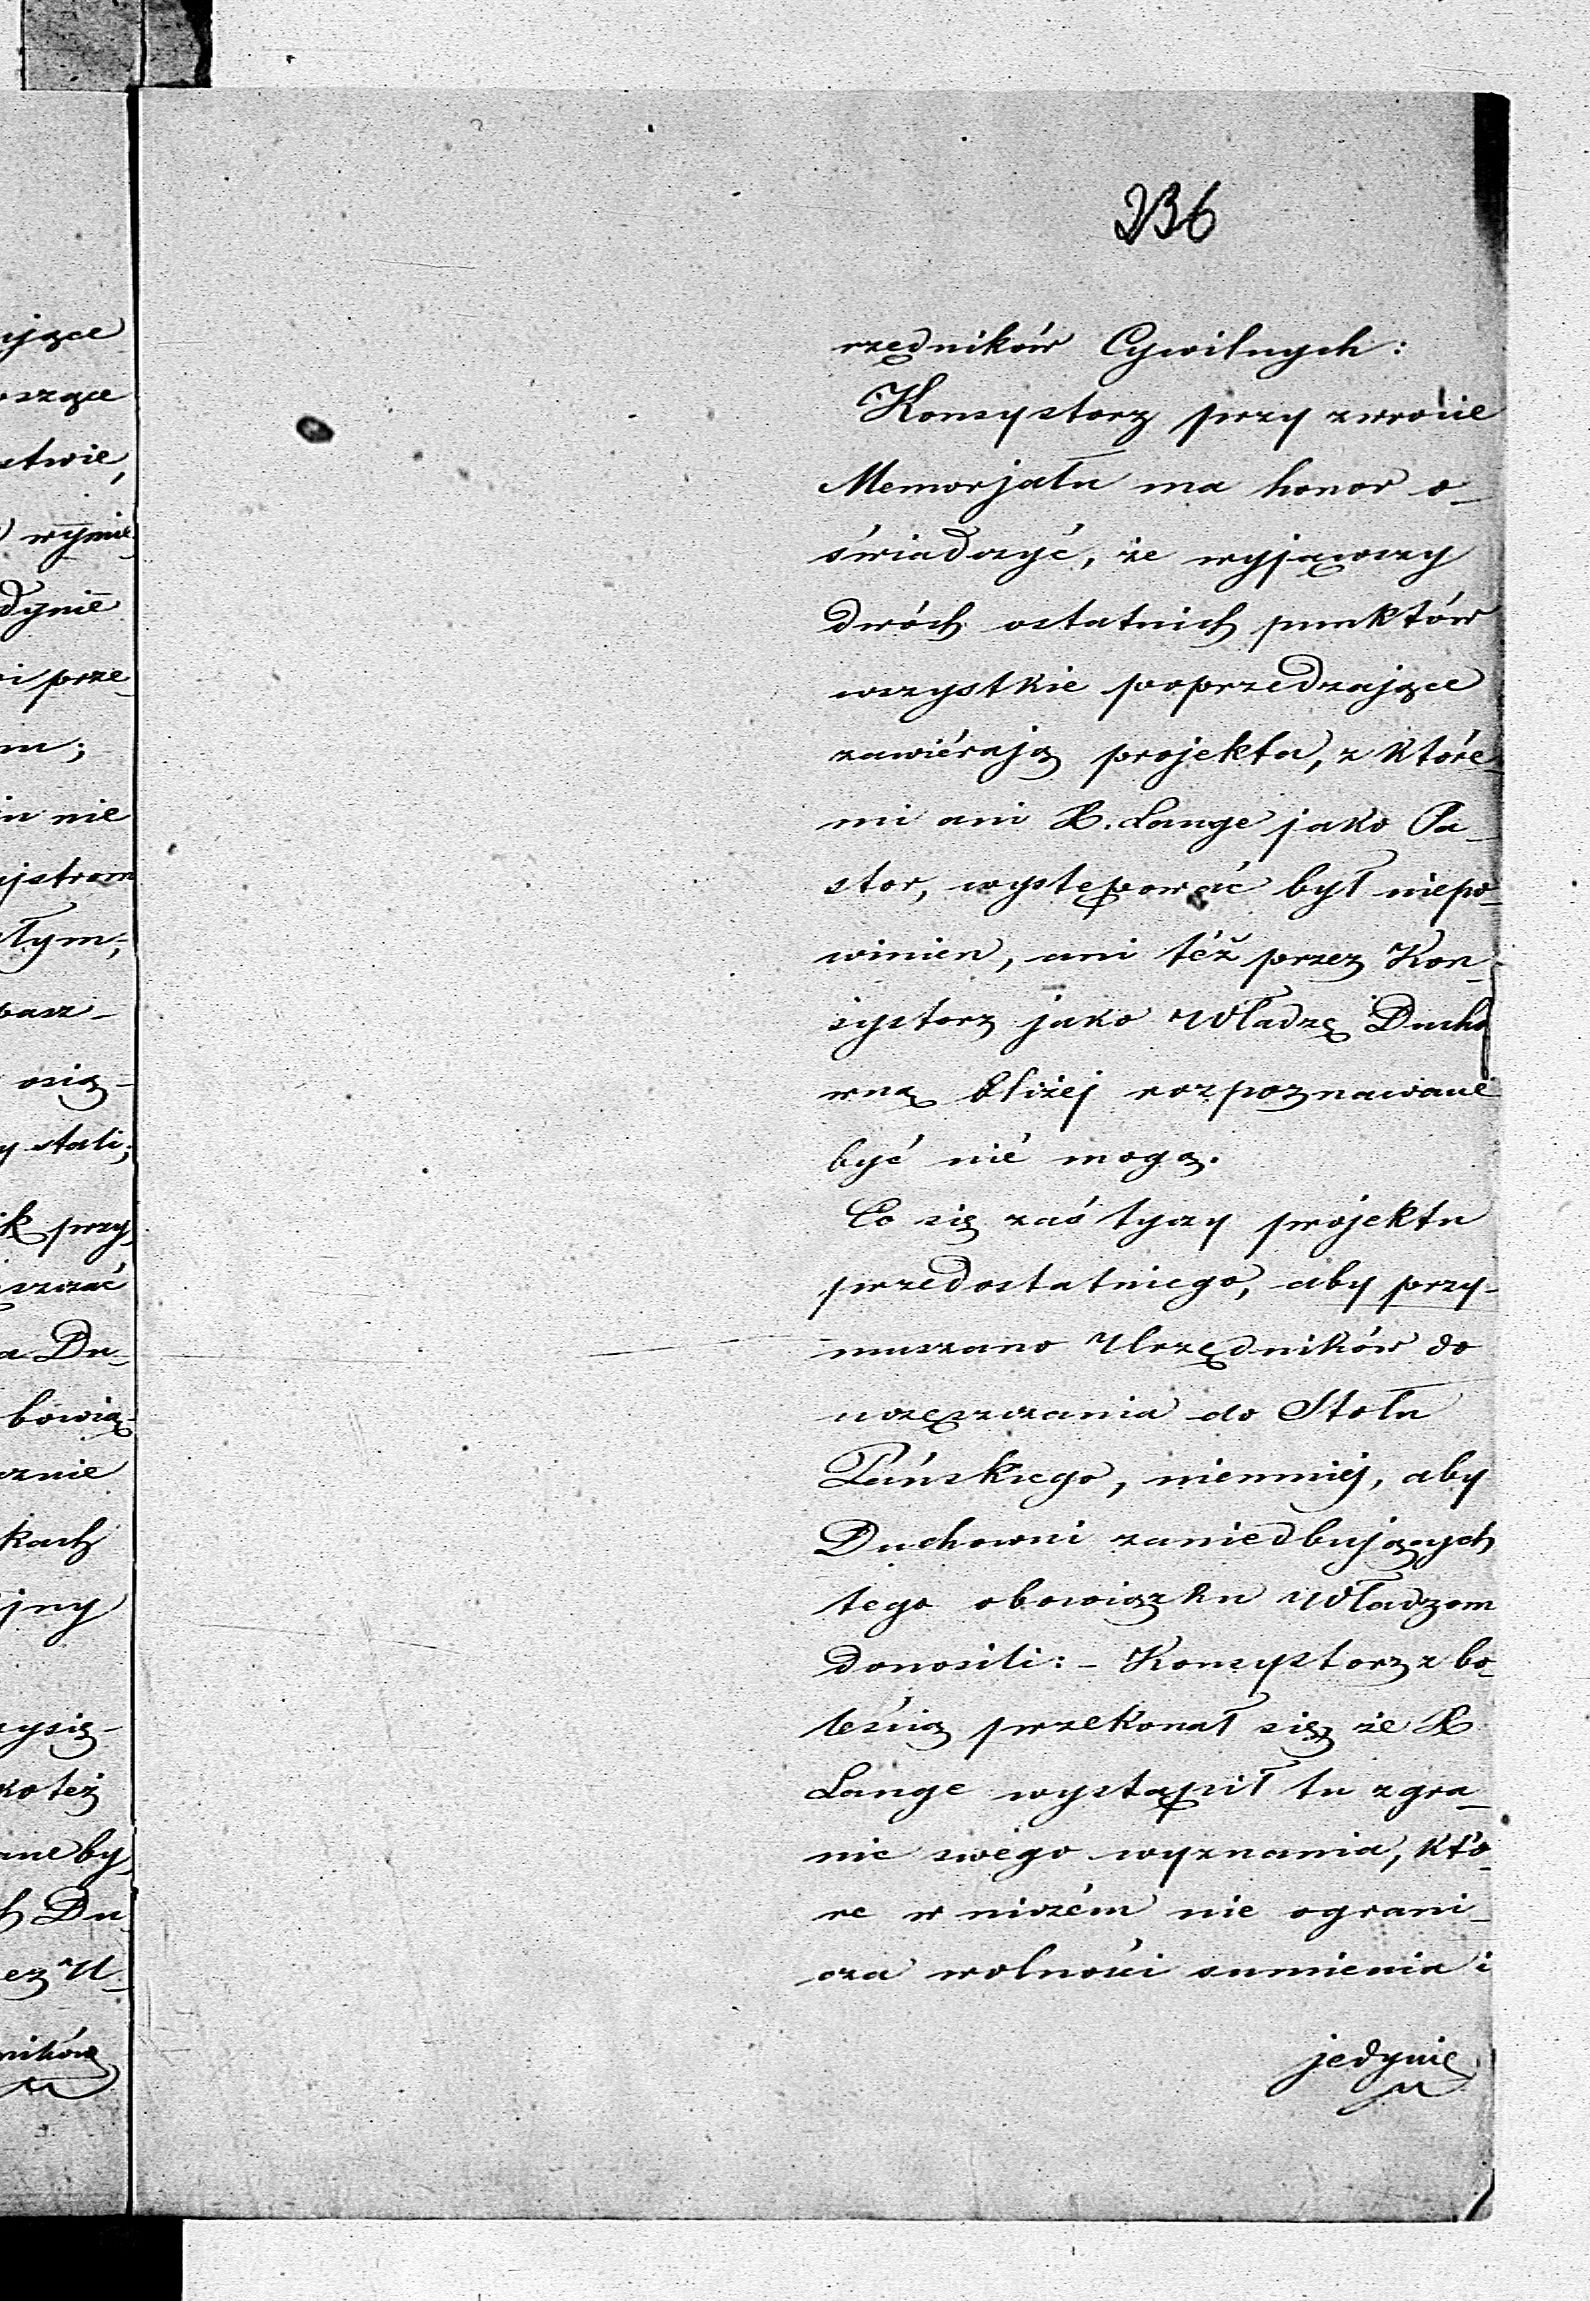 236
rzędników Cywilnych:
Konsystorz przy zwrocie
Memorjału ma honor o-
świadczyć, że wyjąwszy
dwóch ostatnich punktów
wszystkie poprzedzające
zawiérają projekta, z które-
mi ani X. Lange jako Pa-
stor, występować był niepo-
winien, ani też przez Kon-
systorz jako Władzę Ducho
wną bliżej rozpoznawane
być nié mogą.
Co się zaś tyczy projektu
przedostatniego, aby przy-
muszano Urzędników do
uczęszczania do Stołu
Pańskiego, niemniéj, aby
Duchowni zaniedbujących
tego obowiązku Władzom
donosili: - Konsystorz z bo-
leścią przekonał się że X
Lange wystąpił tu z gra-
nic swégo wyznania, któ-
re w niczém nie ograni-
cza wolności sumienia i
jedynie
ujące
oszące
stwie,
wymie
dynie
i prze-
m;
in nie
ajstrom
ałym,
basz-
osią-
y stali;
ik przy
szczać
a Du-
bowią-
cznie
kach
jny
zysię-
ko też
ane by
h Du-
ez U-
ników